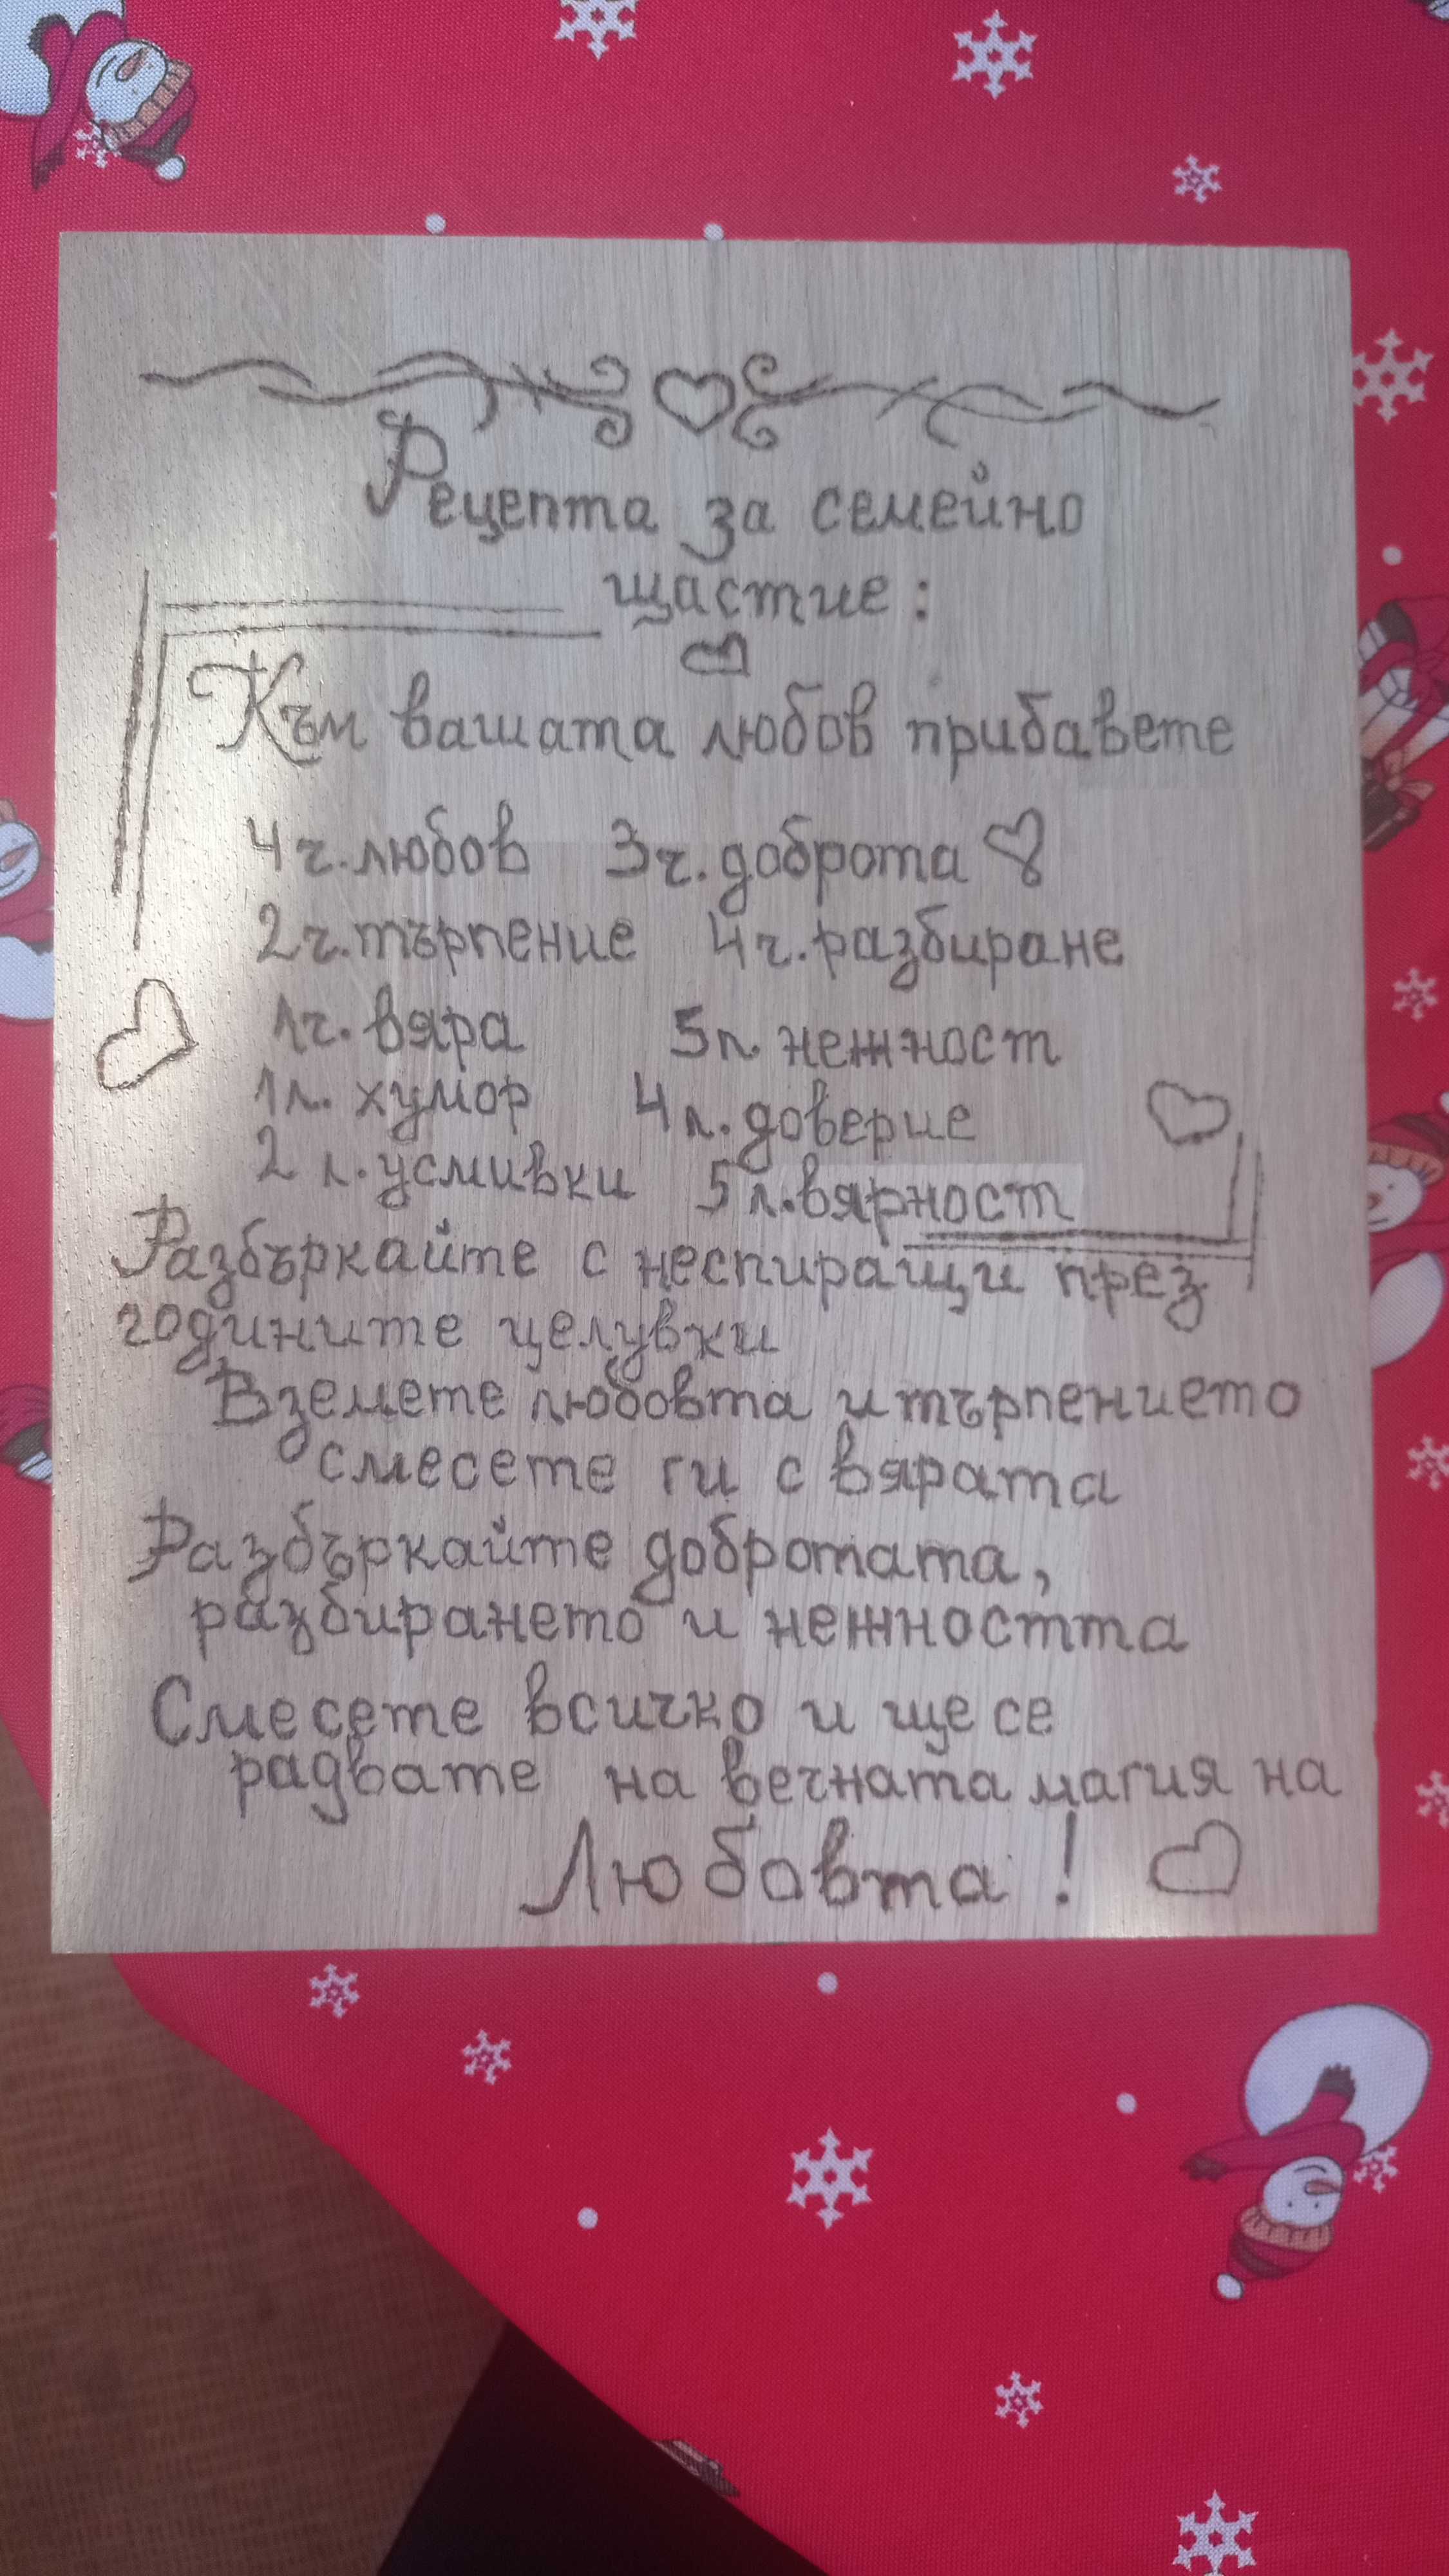 Рецепта за семейно
щастие:
Към вашата любов прибавете
4ч.любов 3ч.доброта
2ч.търпение 4ч.разбиране
1ч.вяра 5л.нежност
1л.хумор 4л.доверие
2л.усмивки 5л.вярност
Разбъркайте с неспиращи през
годините целувки
Вземете любовта и търпението
смесете ги с вярата
Разбъркайте добротата,
разбирането и нежността
Смесете всичко и ще се
радвате на вечната магия на
Любовта!